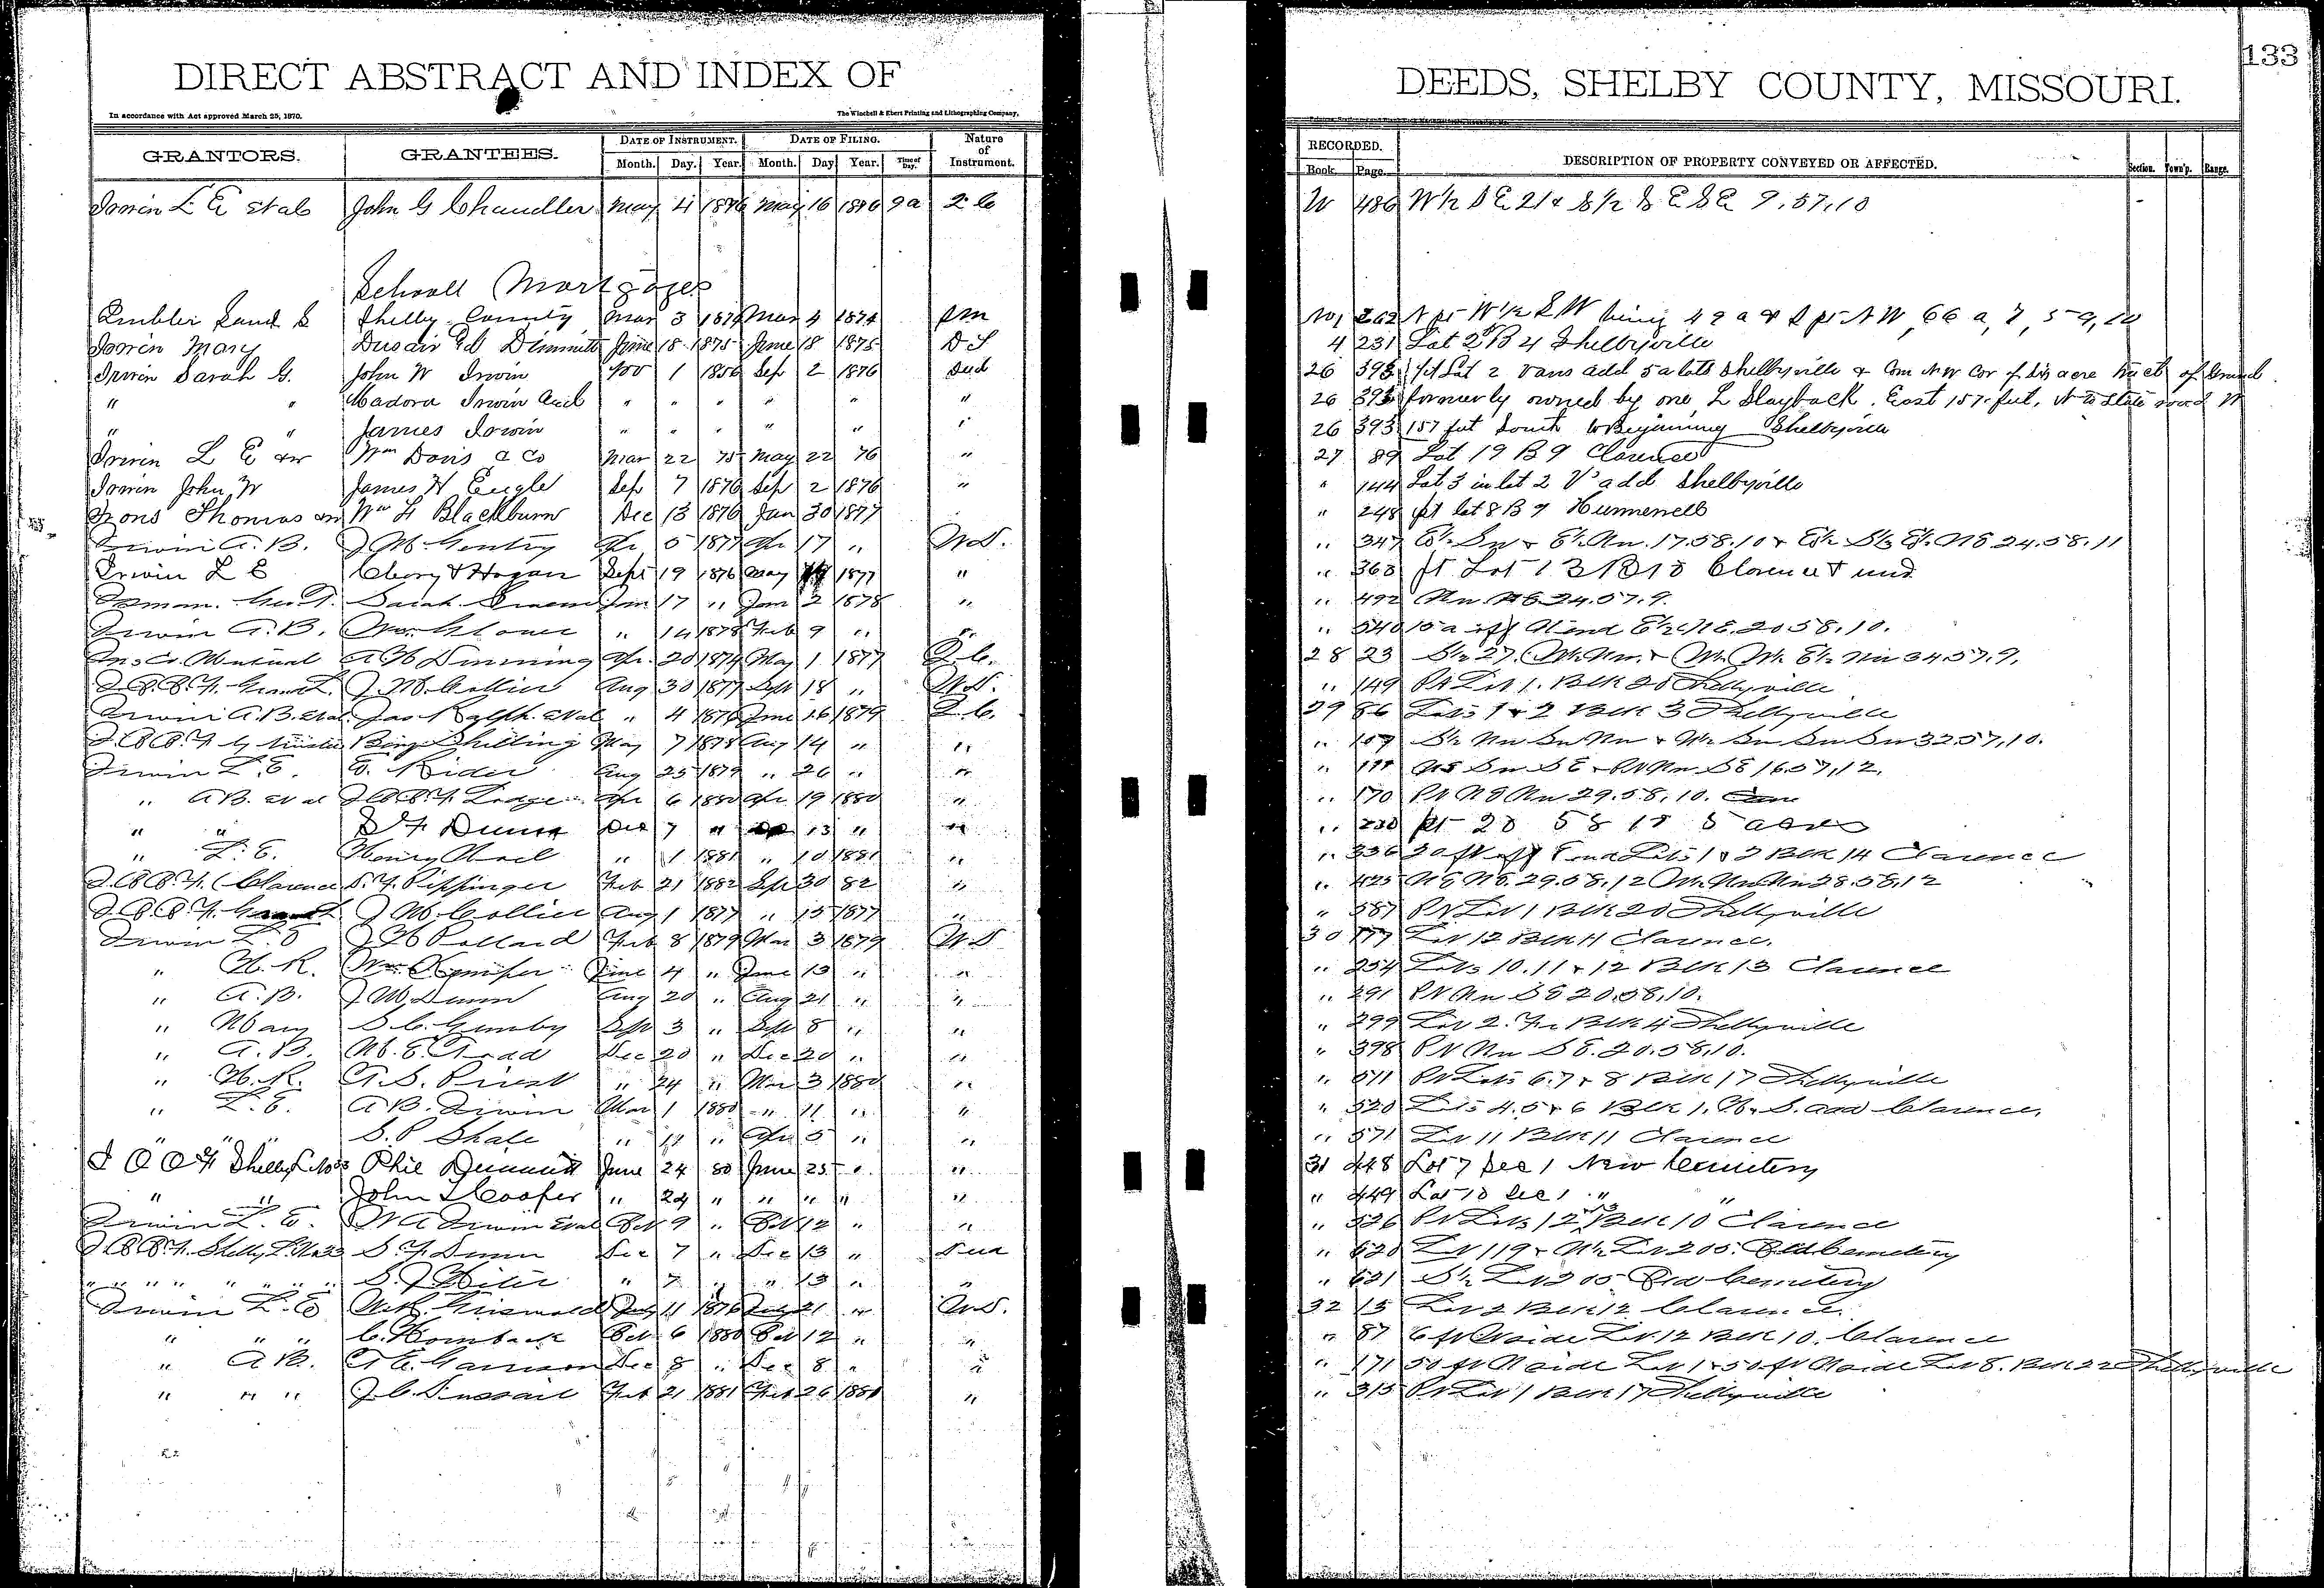 133
DIRECT ABSTRACT AND INDEX OF DEEDS, SHELBY COUNTY, MISSOURI.
In accordance with Act approved March 25, 1870. The Winchell & Ebert Printing and Lithographing Company,
GRANTORS. GRANTEES. DATE OF INSTRUMENT. Month. Day. Year. DATE OF FILING. Month. Day Year. Time of Day. Nature of Instrument. RECORDED. Book. Page. DESCRIPTION OF PROPERTY CONVEYED OR AFFECTED. Section. Town'p. Range.
Irwin L E et al John G Chandler May 4 1876 May 16 1876 9 a W 486 W½ SE 21 & S½ SE SE 9.57.10
School Mortgages
Shelby County Mar 3 1874 Mar 4 1874 No 1 262 N pt W½ SW being 49 a & S pt NW 66 a, 7, 59, 10
Irwin Mary Dimmitt June 18 1875 June 18 1875 4 231 Lot 2 B 4 Shelbyville
Irwin Sarah G. John W Irwin Nov 1 1856 Sep 2 1876 Qud 26 393 pt Lot 2 Vans add 5 a lots Shelbyville & Com NW Cor of six acre tract of land
" " Madora Irwin " " " " " " " 26 393 formerly owned by one L Slayback. East 157 feet, N to State road W
" " James Irwin " " " " " " 26 393 157 feet South to Beginning Shelbyville
Irwin L E Wm Davis & Co Mar 22 75 May 22 76 " 27 89 Lot 19 B 9 Clarence
Irwin John W James H Engle Sep 7 1876 Sep 2 1876 " " 144 Lot 3 in lot 2 V add Shelbyville
Irons Thomas Wm H Blackburn Dec 13 1876 Jan 30 1877 " 248 pt lot 8 B 7 Hunnewell
Irwin A. B. J M Gentry Apr 5 1877 Apr 17 " W.D. " 347 E½ Sw & E½ Nw. 17.58.10 & 24.58.11
Irwin L E & Hogan Sept 19 1876 May 1877 " " 363 pt Lot Clarence
Sarah Jan 17 " Jan 2 1878 " " 492 Nw. NE 24.57.9.
Irwin A. B. Wm Glover " 14 1878 Feb 9 " " " 540 15 a off N end E½ NE. 20 58.10.
Mutual Apr. 20 1874 May 1 1877 Q.C. 28 23 S½ 27, 34.57.9.
I.O.O.F. J. M. Collier Aug 30 1877 Sept 18 " W.D. " 149 Pt Lot 1. Blk 20 Shelbyville
Irwin A. B. et al. Jas Ralph et al " 4 1876 June 16 1879 Q.C. 29 86 Lots 1 & 2 Blk 3 Shelbyville
I.O.O.F. by trustee Benj Shilling May 7 1878 Aug 14 " " " 107 S½ Nw Sw Nw & 32.57.10.
Irwin L. E. E. Rider Aug 25 1879 " 26 " " " 111 NE Sw SE & Pt Nw SE 16.57.12.
" A B. et al I.O.O.F. Lodge Apr 6 1880 Apr 19 1880 " " 170 Pt NE Nw 29.58.10.
" " S F Dunn Dec 7 " 13 " " " 230 pt 20 58 10 5 acres
" L. E. Henry " 1 1881 " 10 1881 " " 336 20 ft off E end Lots 1 & 2 Blk 14 Clarence
I.O.O.F. Clarence S. F. Pippinger Feb 21 1882 Sep 30 82 " " 425 NE NE. 29.58.12 28.58.12
I.O.O.F. J M Collier Aug 1 1877 " 15 1877 " " 587 Pt Lot 1 Blk 20 Shelbyville
Irwin L. E J H Pollard Feb 8 1879 Mar 3 1879 W.D 30 177 Lot 12 Blk 11 Clarence.
" H. R. Wm June 4 " June 13 " " " 254 Lots 10.11 & 12 Blk 13 Clarence
" A. B. J M Dunn Aug 20 " Aug 21 " " " 291 Pt Nw SE 20.58.10.
" Mary S. C. Gunby Sept 3 " Sept 8 " " " 299 Lot 2. Blk 4 Shelbyville
" A. B. M. E. Dec 20 " Dec 20 " " " 398 Pt Nw SE. 20.58.10.
" H. R. A. S. Priest " 24 " Mar 3 1880 " " 511 Pt Lots 6.7 & 8 Blk 17 Shelbyville
" L. E. A B. Irwin Mar 1 1880 " 11 " " " 520 Lots 4.5 & 6 Blk 1. add Clarence.
" " " S. P Shale " 11 " Apr 5 " " " 571 Lot 11 Blk 11 Clarence
I O O F Shelby L No 33 Phil Dimmitt June 24 80 June 25 " " 31 448 Lot 7 Sec 1 New Cemetery
" " John L Cooper " 24 " " " " " " 449 Lot 10 Sec 1 " "
Irwin L. E. W A Irwin et al Oct 9 " Oct 12 " " " 526 Pt Lots 1 2 3 Blk 10 Clarence
I.O.O.F. Shelby L. No 33 S. F. Dunn Dec 7 " Dec 13 " Qud " 620 Lot 119 & W½ Lot 205. Old Cemetery
" " " " " " " S. J. " 7 " " 13 " " " 621 S½ Lot 205 Old Cemetery
Irwin L. E Griswold July 11 1876 July 21 " W.D. 32 15 Lot 2 Blk 12 Clarence.
" " " C. Hornback Oct 6 1880 Oct 12 " " " 87 6 ft N side Lot 12 Blk 10. Clarence
" A B. Garrison Dec 8 " Dec 8 " " " 171 50 ft N side Lot 1 & 50 ft N side Lot 8. Blk 22 Shelbyville
" " " J. C. Feb 21 1881 Feb 26 1881 " " 315 Pt Lot 1 Blk 17 Shelbyville